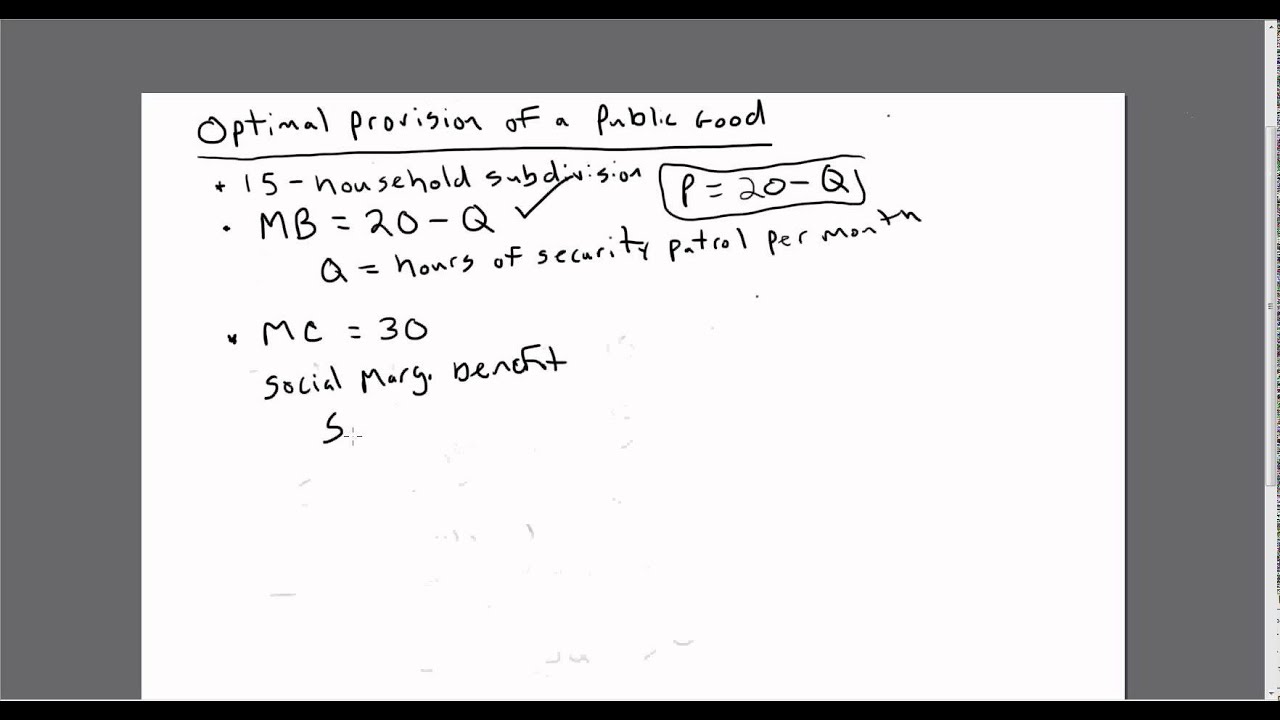 Optimal provision of a Public Good
* 15-household subdivision P = 20 - Q
• MB = 20 - Q ✓
Q = hours of security patrol per month
* MC = 30
Social Marg. benefit
S